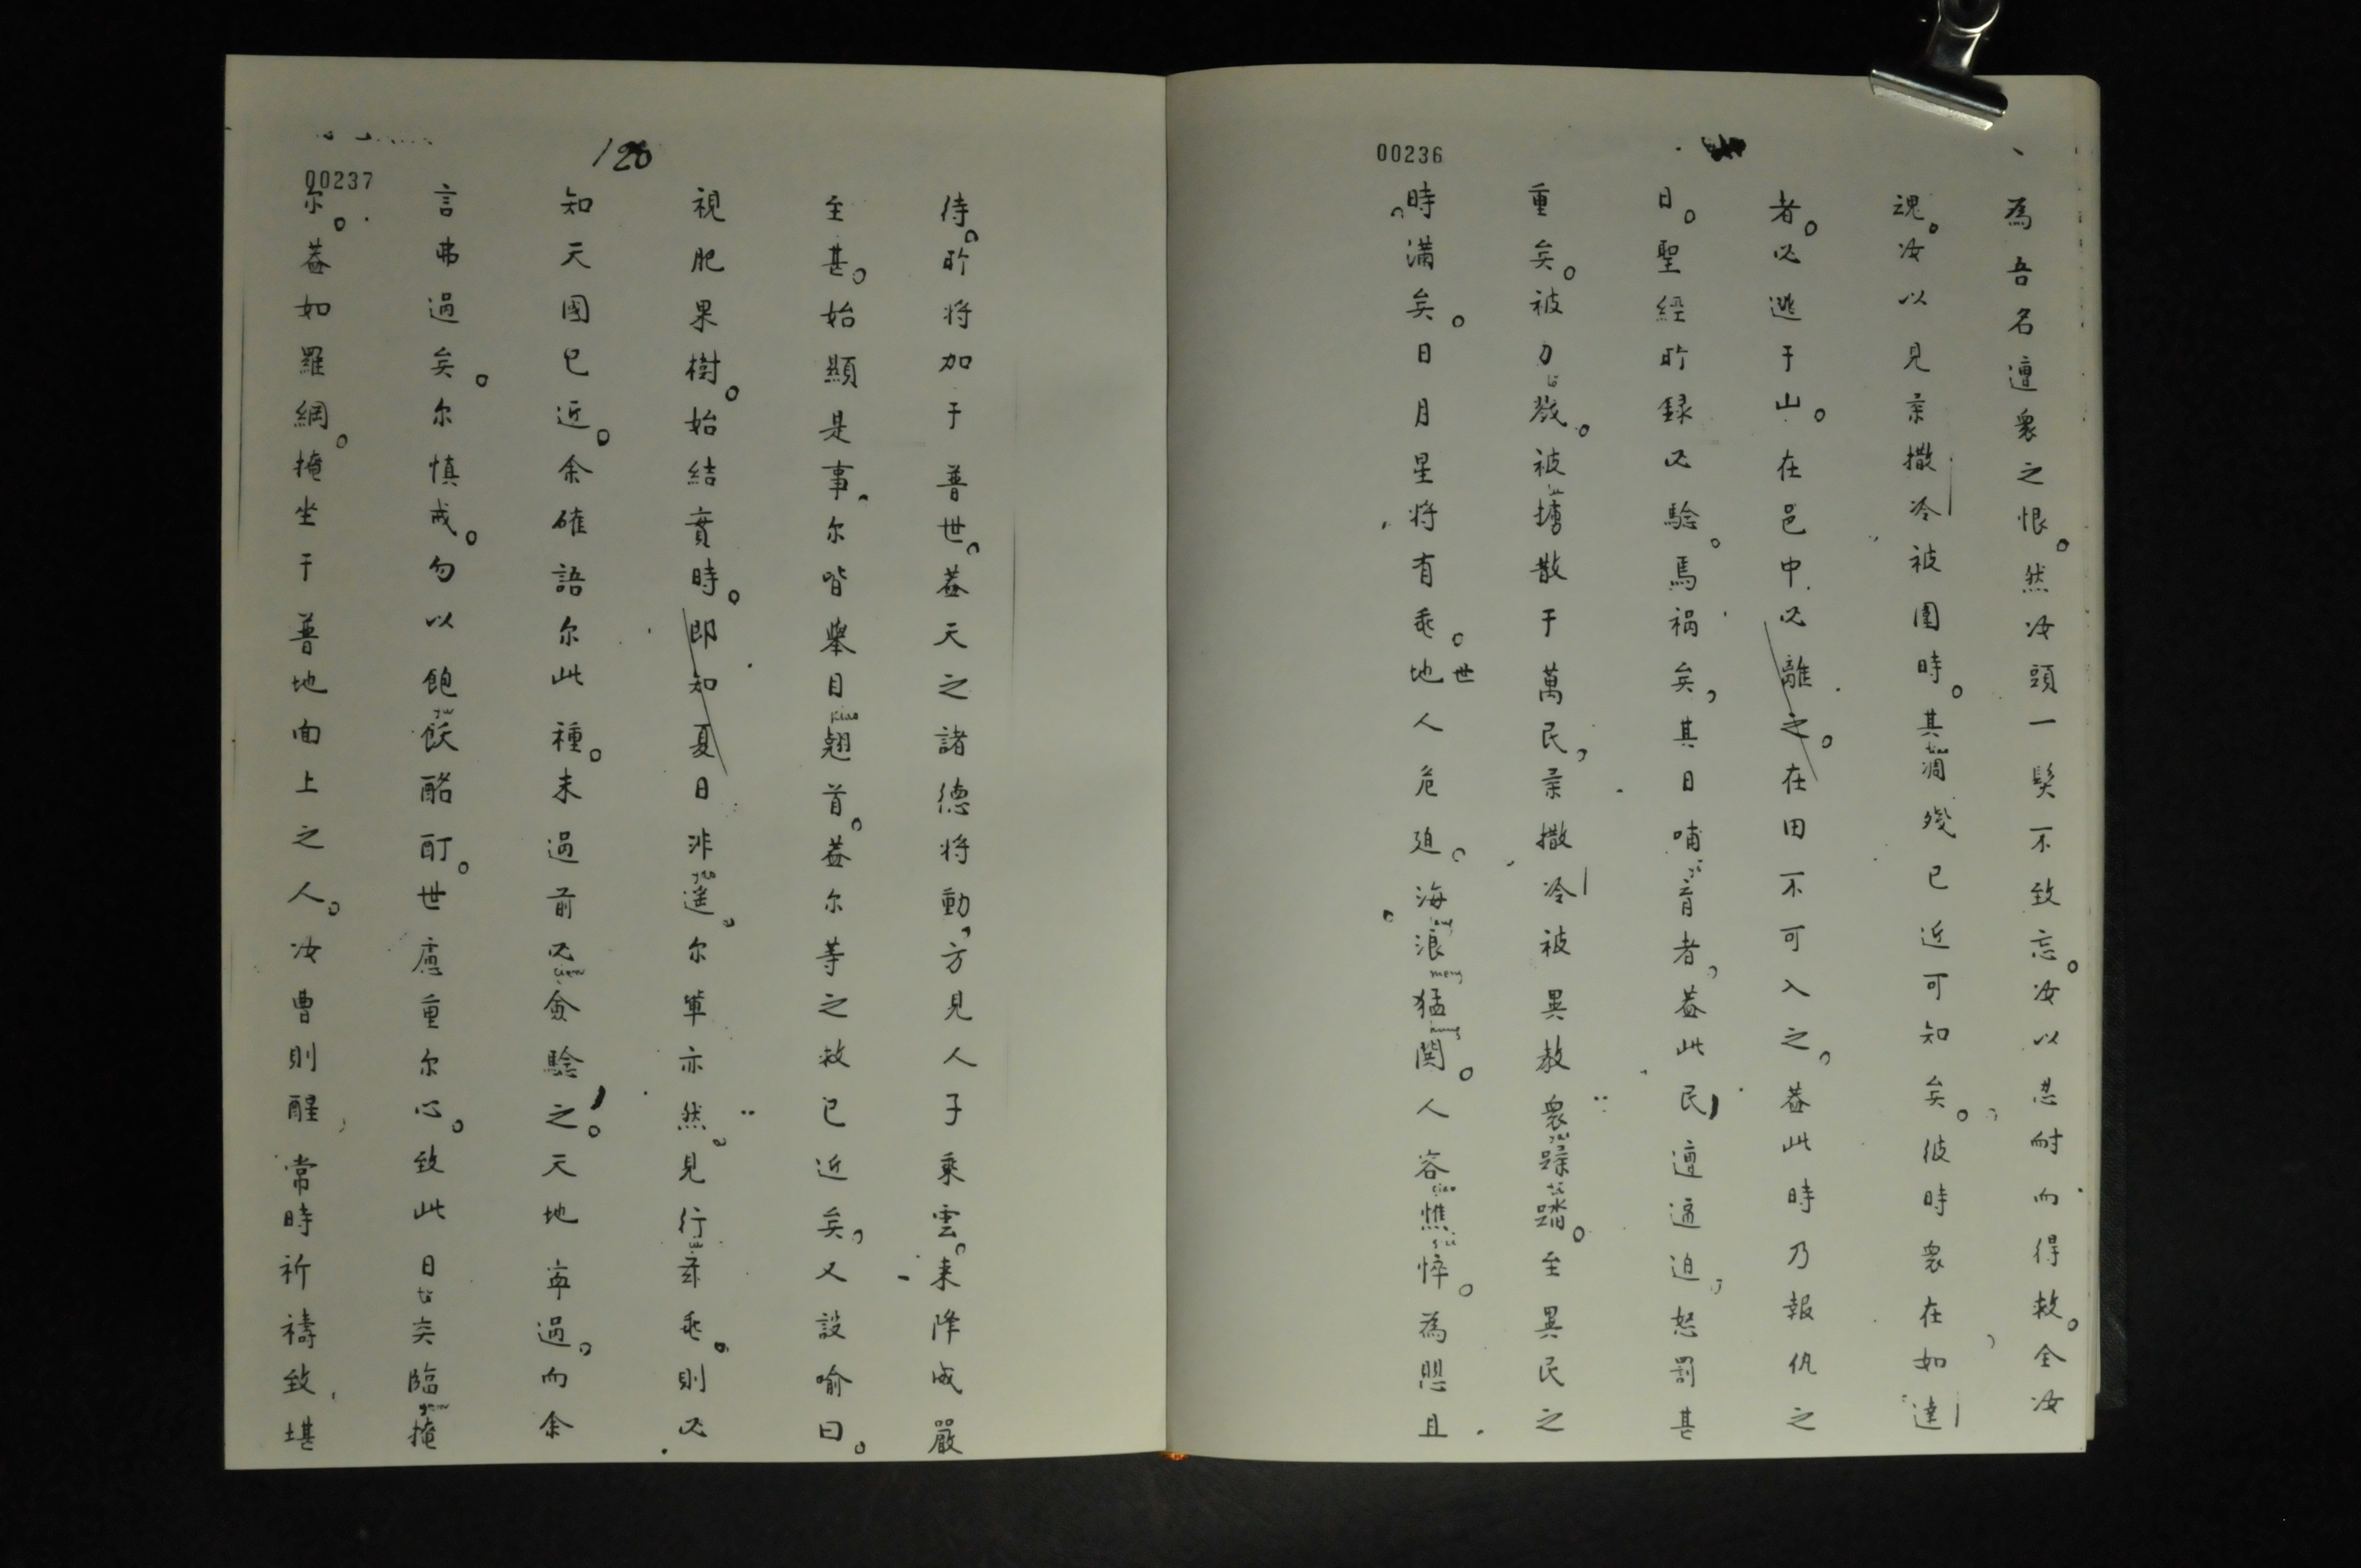 00236
為吾名遭衆之恨。然汝頭一髮不致忘。汝以忍耐而得救。全汝
魂。汝以見柰撒冷被圍時。其凋殘已近可知矣。彼時衆在如達
者。必逃于山。在邑中必離之。在田不可入之。蓋此時乃報仇之
日。聖經所録必驗。焉禍矣，其日哺育者，蓋此民遭逼迫，怒罰甚
重矣。被刀殺。被擄散于萬民，柰撒冷被異教衆蹂踏。至異民之
時滿矣。日月星将有乖。地世人危廹。海浪猛鬨。人容憔悴。為思且
120
00237
待。所将加于普世。蓋天之諸德将動，方見人子乘雲。来降威嚴
至甚。始顯是事。尔皆舉目翹首。蓋尔等之救已近矣，又設喻曰。
視肥果樹。始結實時。即知夏日非遥。尔軰亦然。見行斯乖。則必
知天國已近。余確語尔此種。未過前必僉驗之。天地雖過。而余
言弗過矣。尔慎戒。勿以飽飫酩酊。世慮重尔心。致此日突臨掩
尔。蓋如羅網。掩坐于普地面上之人。汝曹則醒常時祈禱致堪